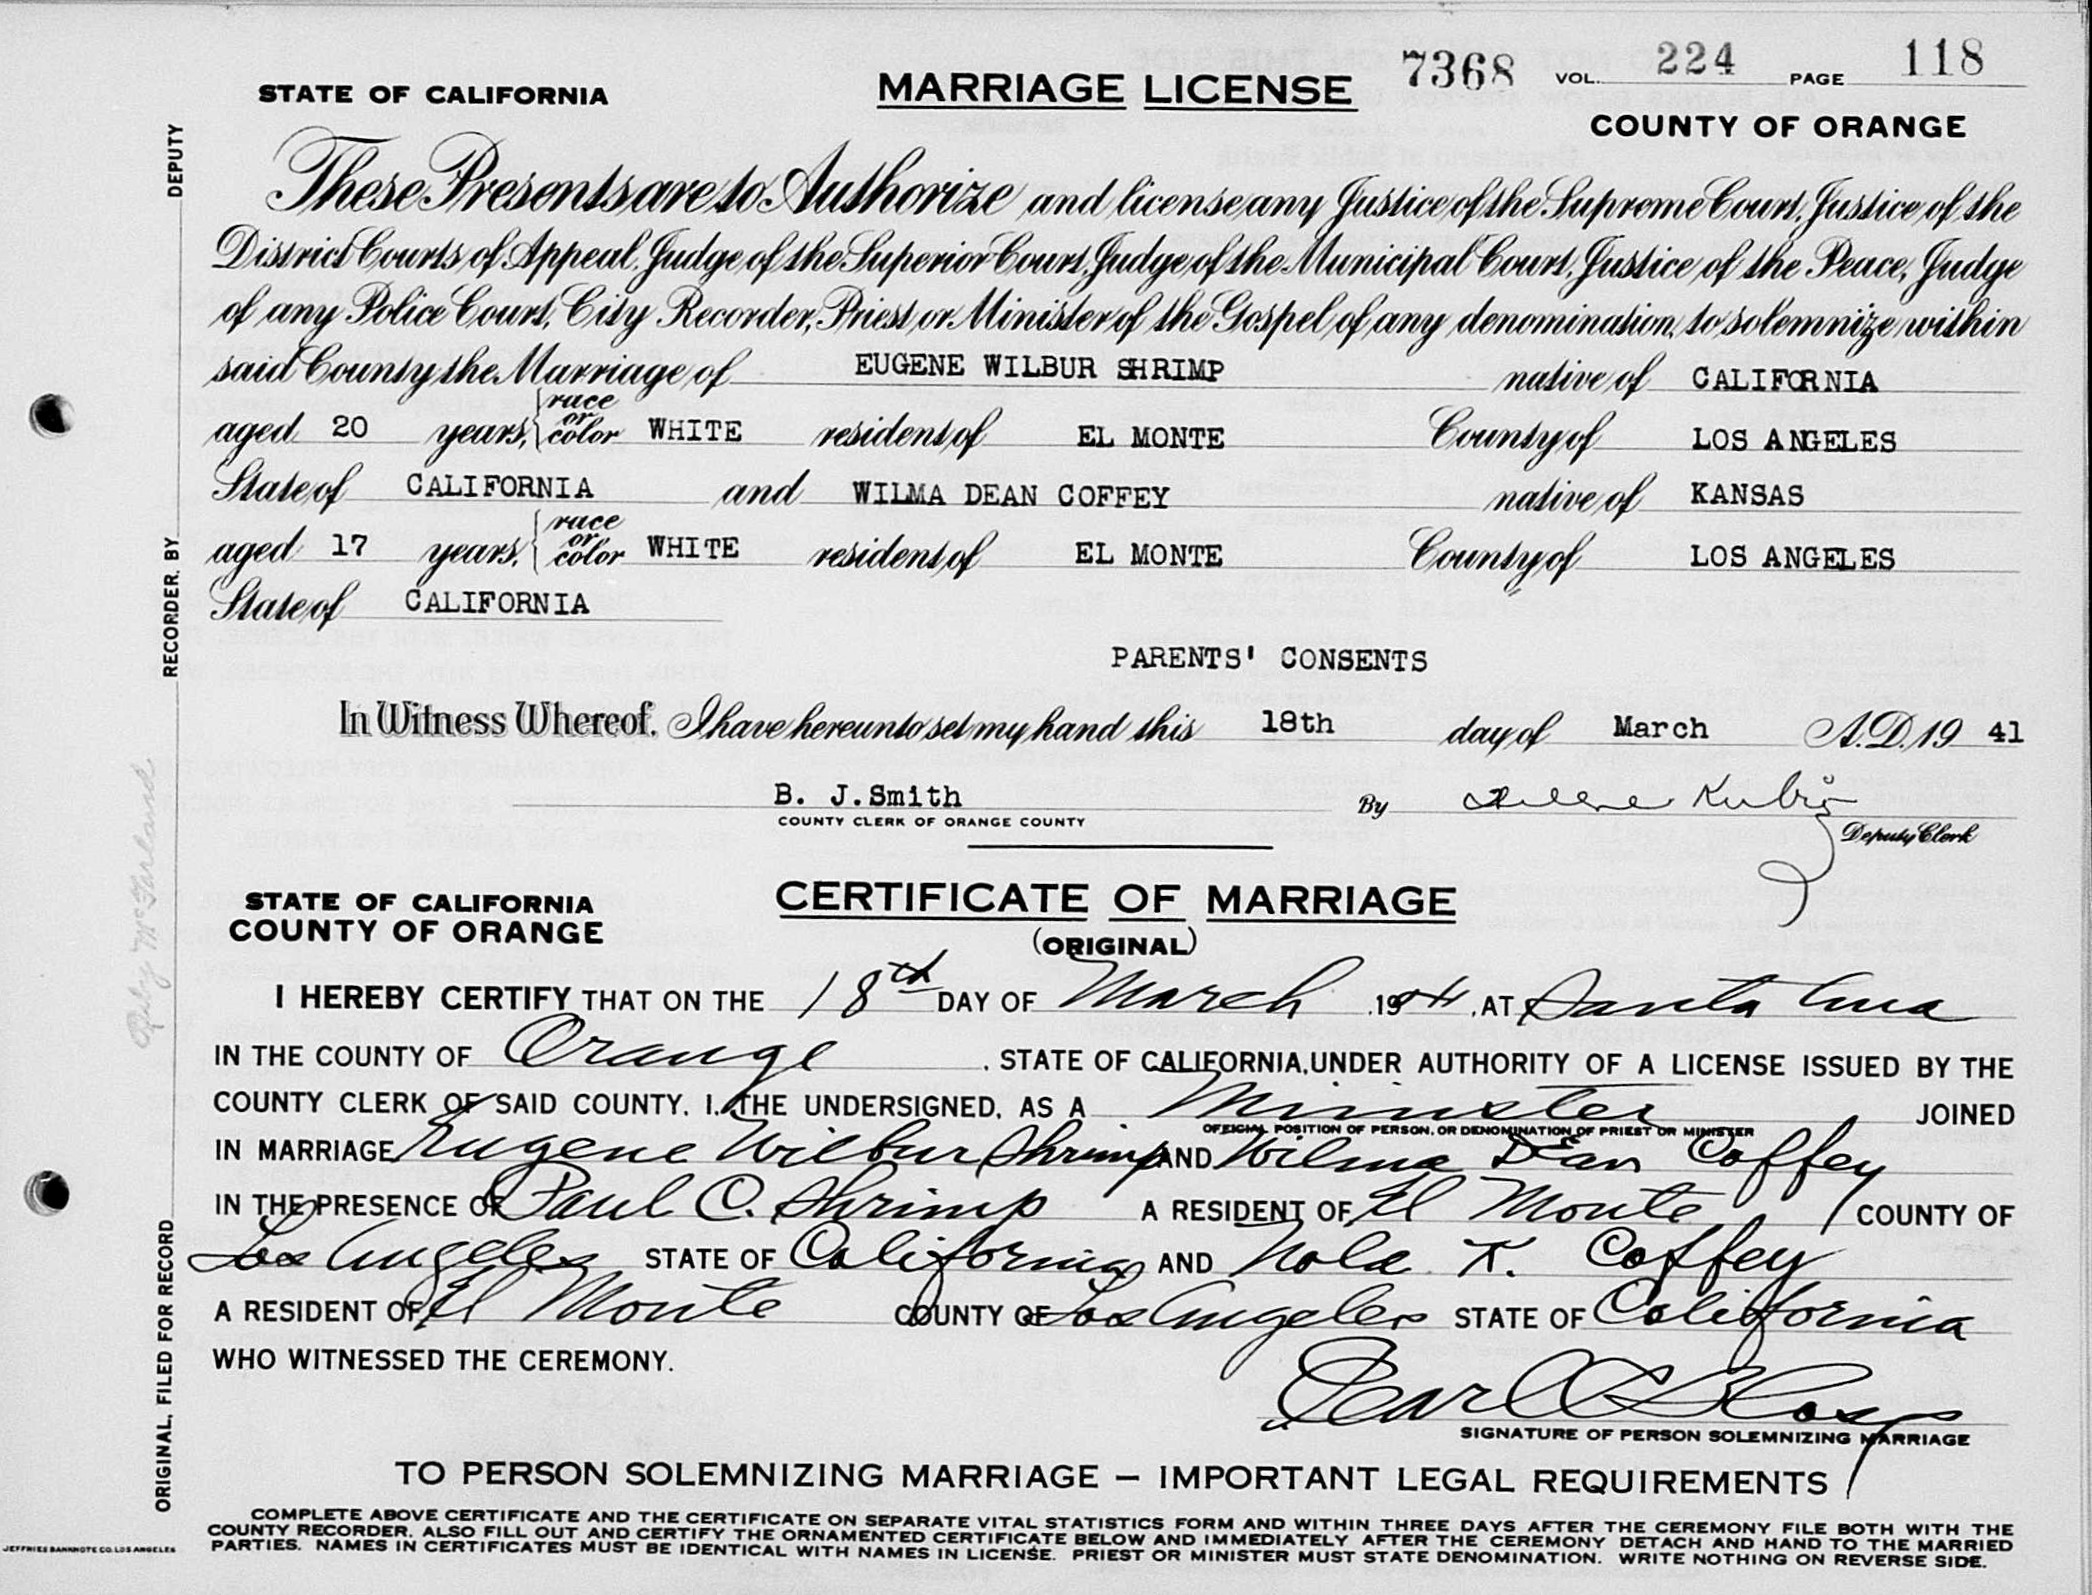 7368 VOL. 224 PAGE 118
STATE OF CALIFORNIA MARRIAGE LICENSE
COUNTY OF ORANGE
These Presents are to Authorize and license any Justice of the Supreme Court, Justice of the
District Courts of Appeal, Judge of the Superior Court, Judge of the Municipal Court, Justice of the Peace, Judge
of any Police Court, City Recorder, Priest or Minister of the Gospel of any denomination, to solemnize within
said County the Marriage of EUGENE WILBUR SHRIMP native of CALIFORNIA
aged 20 years, race or color WHITE resident of EL MONTE County of LOS ANGELES
State of CALIFORNIA and WILMA DEAN COFFEY native of KANSAS
aged 17 years, race or color WHITE resident of EL MONTE County of LOS ANGELES
State of CALIFORNIA
PARENTS' CONSENTS
In Witness Whereof, I have hereunto set my hand this 18th day of March A.D. 19 41
B. J.Smith By
COUNTY CLERK OF ORANGE COUNTY Deputy Clerk
STATE OF CALIFORNIA CERTIFICATE OF MARRIAGE
COUNTY OF ORANGE
(ORIGINAL)
I HEREBY CERTIFY THAT ON THE 18th DAY OF March 19 , AT Santa Ana
IN THE COUNTY OF Orange , STATE OF CALIFORNIA, UNDER AUTHORITY OF A LICENSE ISSUED BY THE
COUNTY CLERK OF SAID COUNTY, I, THE UNDERSIGNED, AS A Minister JOINED
OFFICIAL POSITION OF PERSON, OR DENOMINATION OF PRIEST OR MINISTER
IN MARRIAGE Eugene Wilbur Shrimp AND Wilma Dean Coffey
IN THE PRESENCE OF Paul C. Shrimp A RESIDENT OF El Monte COUNTY OF
Los Angeles STATE OF California AND Nola K. Coffey
A RESIDENT OF El Monte COUNTY OF Los Angeles STATE OF California
WHO WITNESSED THE CEREMONY.
SIGNATURE OF PERSON SOLEMNIZING MARRIAGE
TO PERSON SOLEMNIZING MARRIAGE – IMPORTANT LEGAL REQUIREMENTS
COMPLETE ABOVE CERTIFICATE AND THE CERTIFICATE ON SEPARATE VITAL STATISTICS FORM AND WITHIN THREE DAYS AFTER THE CEREMONY FILE BOTH WITH THE
COUNTY RECORDER. ALSO FILL OUT AND CERTIFY THE ORNAMENTED CERTIFICATE BELOW AND IMMEDIATELY AFTER THE CEREMONY DETACH AND HAND TO THE MARRIED
PARTIES. NAMES IN CERTIFICATES MUST BE IDENTICAL WITH NAMES IN LICENSE. PRIEST OR MINISTER MUST STATE DENOMINATION. WRITE NOTHING ON REVERSE SIDE.
JEFFRIES BANKNOTE CO. LOS ANGELES
ORIGINAL, FILED FOR RECORD RECORDER, BY DEPUTY
Ruby McFarland